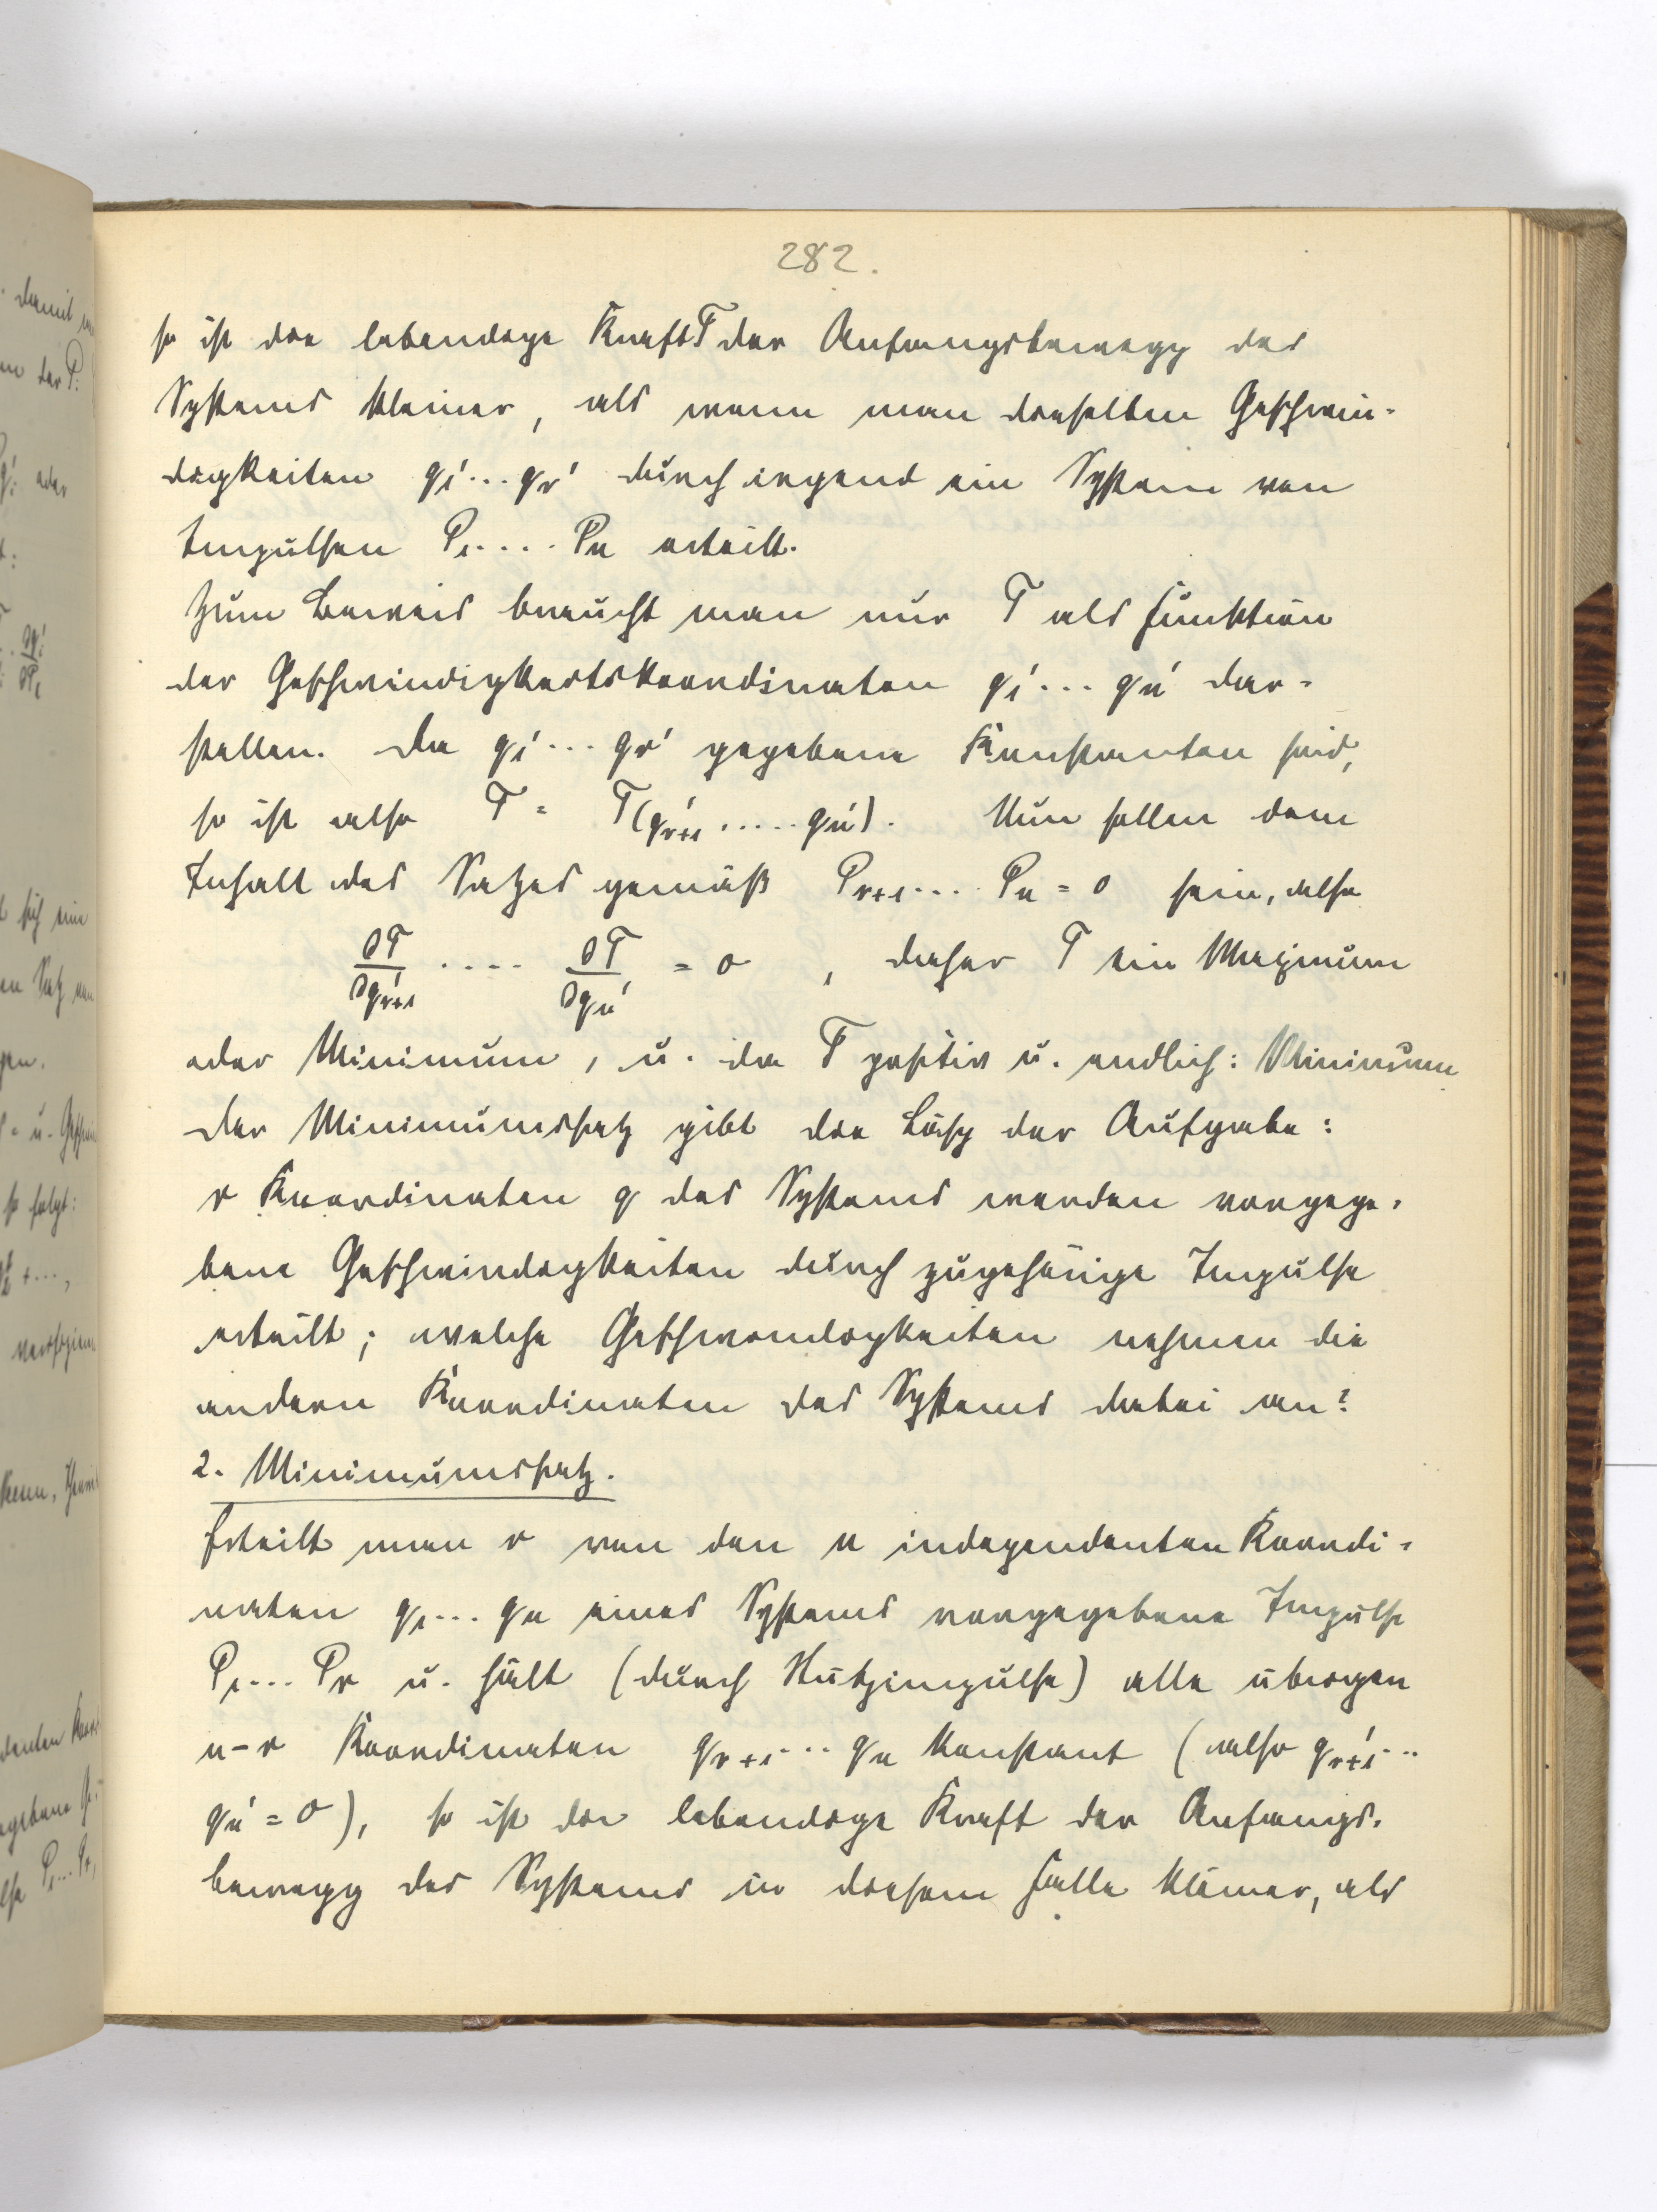 282.
so ist die lebendige Kraft T der Anfangsbewegg des
Systems kleiner, als wenn man dieselben Geschwin-
digkeiten q₁'... qᵣ' durch irgend ein System von
Impulsen P₁.... Pₙ erteilt.
Zum Beweis braucht man nur T als Funktion
der Geschwindigkeitskoordinaten q₁'... qₙ' dar-
stellen. Da q₁'... qᵣ' gegebene Konstanten sind,
so ist also T = T(qᵣ₊₁' ..... qₙ'). Nun sollen dem
Inhalt des Satzes gemäß Pᵣ₊₁... Pₙ = 0 sein, also
∂T/∂qᵣ₊₁' .... ∂T/∂qₙ' = 0 , daher T ein Maximum
oder Minimum, u. da T positiv u. endlich: Minimum
Der Minimumssatz gibt die Lösg der Aufgabe:
r Koordinaten q des Systems werden vorgege-
bene Geschwindigkeiten durch zugehörige Impulse
erteilt; welche Geschwindigkeiten nehmen die
andern Koordinaten des Systems dabei an?
2. Minimumssatz.
Erteilt man r von den n independenten Koordi-
naten q₁... qₙ eines Systems vorgegebene Impulse
P₁... Pᵣ u. hält (durch Stutzimpulse) alle übrigen
n-r Koordinaten qᵣ₊₁... qₙ konstant (also qᵣ₊₁'...
qₙ' = 0), so ist die lebendige Kraft der Anfangs-
bewegg des Systems in diesem Falle kleiner, als